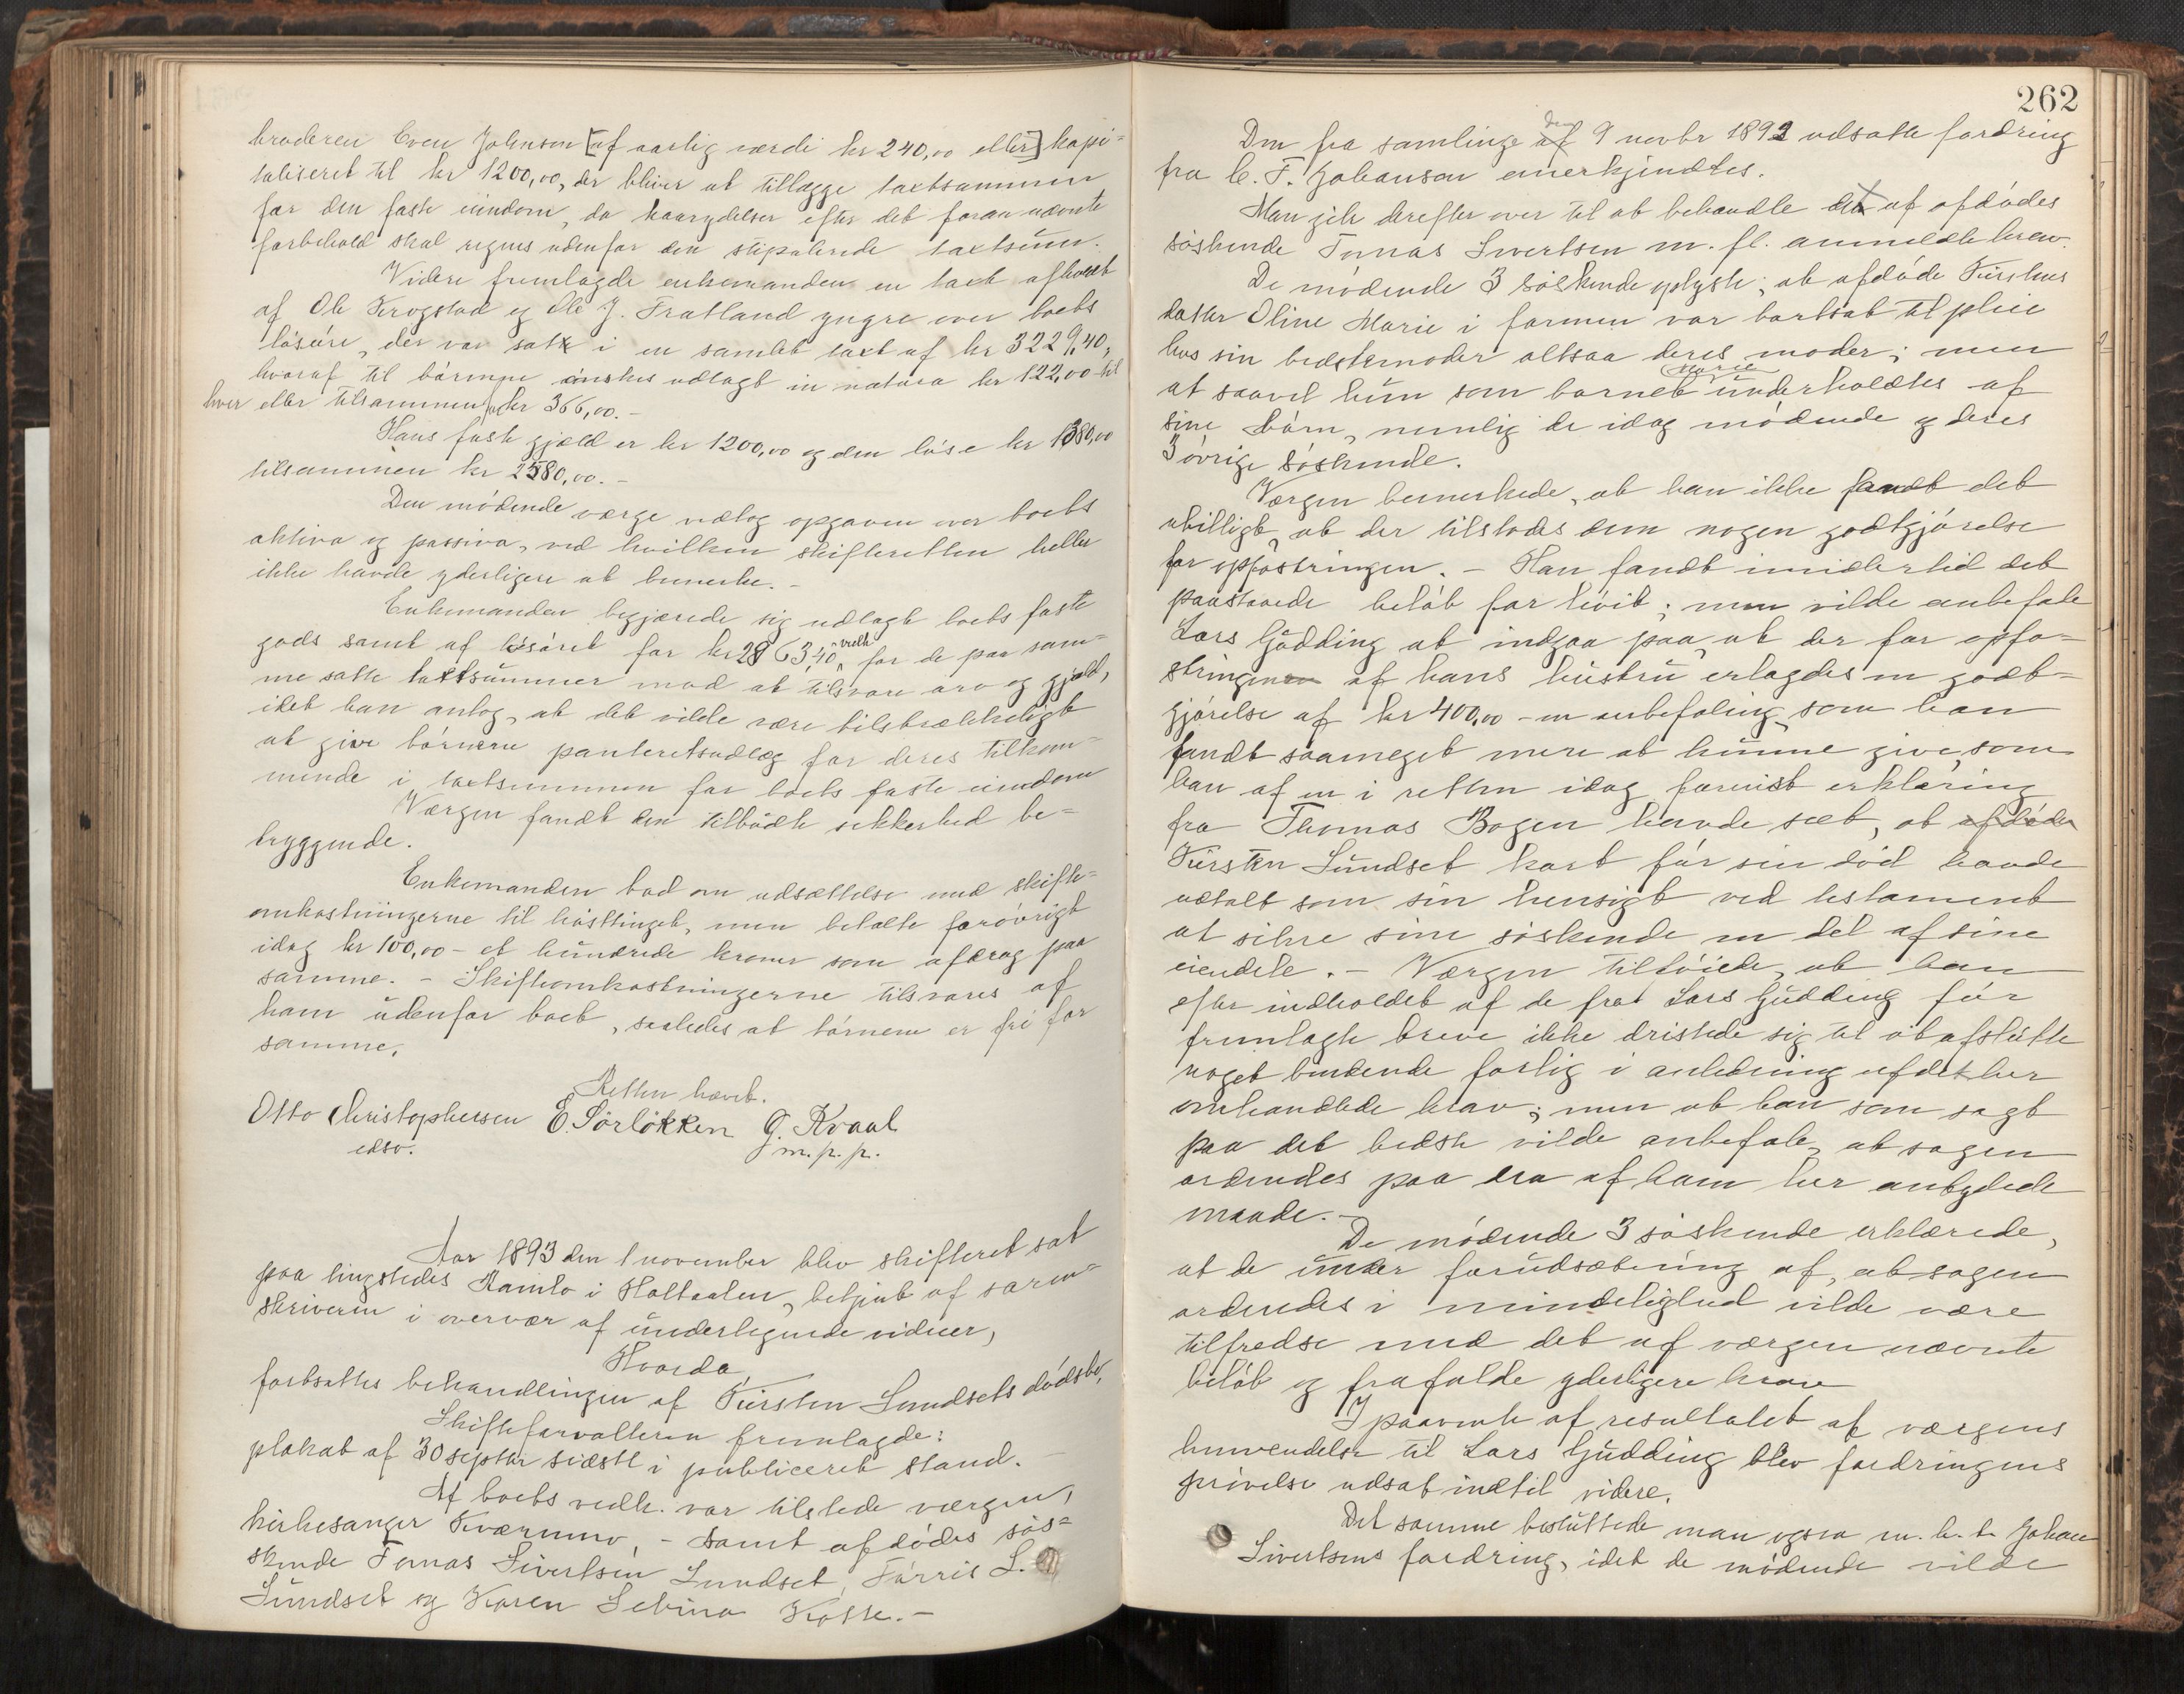 broderen Even Johnsen [af aarlig værdi kr 240,00 eller] kapi=
taliseret til kr 1200,00, der bliver at tillægge taxtsummen
for den faste eiendom, da kaarydelser efter det foran nævnte
forbehold skal regnes udenfor den stipulerede taxtsum.
Videre fremlagde enkemanden en taxt afholdt
af Ole Krogstad og Ole J. Fratland yngre over boets
løsøre, der var satt i en samlet taxt af kr 3229,40,
hvoraf til børnene ønskes udlagt in natura kr 122,00 til
hver eller tilsammen kr 366,00.-
Hans faste gjæld er kr 1200,00 og den løse kr 1380,00
tilsammen kr 2580,00.-
Den mødende verge vedtog opgaven over boets
aktiva og passiva, ved hvilken skifteretten heller
ikke havde yderligere at bemerke.-
Enkemanden begjærede sig udlagt boets faste
gods samt af løsøret for kr 2863,40 værdi for de paa sam=
me satte taxtsummer mod at tilsvare arv og gjæld,
idet han antog, at det vilde være tilstrækkeligt
at give børnene panteretsudlæg for deres tilkom=
mende i taxtsummen for boets faste eiendom
Værgen fandt den tilbudte sikkerhed be=
tryggende.
Enkemanden bad om udsættelse med skifte=
omkostningerne til høsttinget, men betalte forøvrigt
idag kr 100,00 - et hundrede kroner som afdrag paa
samme. - Skifteomkostningerne tilsvares af
ham udenfor boet, saaledes at børnene er fri for
samme.
Retten hævet.
Otto Christophersen E. Sørløkken G. Kvaal
edsv. m. p. p.
Aar 1893 den 1 november blev skifteret sat
paa tingstedet Ramlo i Holtaalen, betjent af soren=
skriveren i overvær af undertegnede vidner,
Hvorda
fortsattes behandlingen af Kirsten Lundsets dødsbo,
Skifteforvalteren fremlagde:
plakat af 30 septbr sidste i publiceret stand.
Af boets vedk. var tilstede værgen,
kirkesanger Kværnmo, - samt afdødes søs=
kende Tomas Sivertsen Lundset, Førris S.
Lundset og Karen Sebina Kotte.-
262
Den fra samlinge af den 9 novbr 1892 udsatte fordring
fra C. F. Johansen anerkjendtes.
Man gik derefter over til at behandle det af afdødes
søskende Tomas Sivertsen m. fl. anmeldte krav.
De mødende 3 søskende oplyste, at afdøde Kirstens
datter Oline Marie i formen var bortsat til pleie
hos sin bedstemoder altsaa deres moder; men
at saavel hun som barnet Marie underholdtes af
sine børn, nemlig de idag mødende og deres
3 øvrige søskende.
Værgen bemerkede, at han ikke fandt det
ubilligt, at der tilstodes dem nogen godtgjørelse
for opfostringen. - Han fandt imidlertid det
paastaaede beløb for høit; men vilde anbefale
Lars Gudding at indgaa paa, at der for opfo=
stringen af hans hustru erlagdes en godt=
gjørelse af kr 400,00 - en anbefaling som han
fandt saameget mere at kunne give, som
han af en i retten idag forevist erklæring
fra Thomas Bogen havde seet, at afdøde
Kirsten Lundset kort før sin død havde
udtalt som sin hensigt ved testament
at sikre sine søskende en del af sine
eiendele. - Værgen tilføiede, at han
efter indholdet af de fra Lars Gudding før
fremlagte breve ikke dristede sig til at afslutte
noget bindende forlig i anledning af det her
omhandlede krav; men at han som sagt
paa det bedste vilde anbefale, at sagen
ordnedes paa den af ham her antydede
maade.-
De mødende 3 søskende erklærede,
at de under forudsætning af, at sagen
ordnedes i mindelighed vilde være
tilfredse med det af værgen nævnte
beløb og frafalde yderligere krav
I paavente af resultatet af værgens
henvendelse til Lars Gudding blev fordringens
prøvelse udsat indtil videre.
Det samme besluttede man ogsaa m. h. t. Johan
Sivertsens fordring, idet de mødende vilde